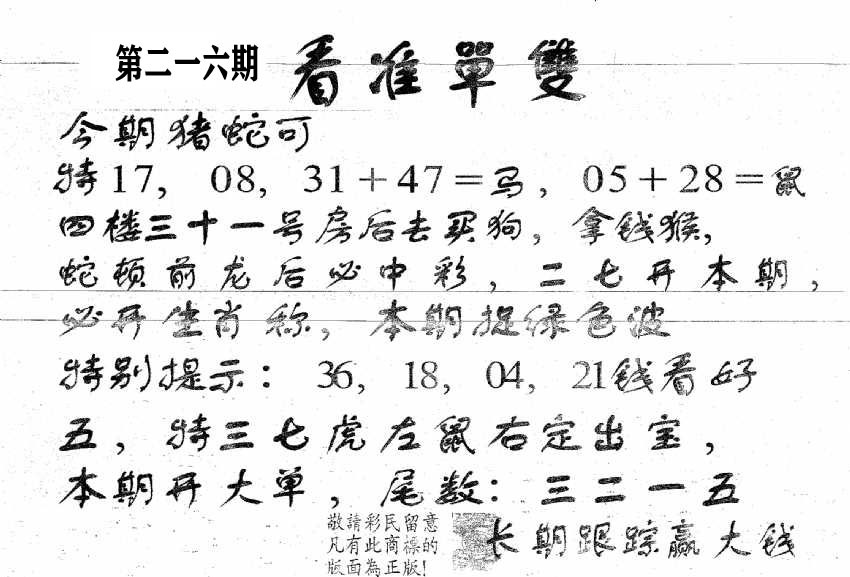 第二一六期 看准單雙
今期猪蛇可
特17, 08, 31+47=马, 05+28=鼠
四楼三十一号房后去买狗, 拿钱猴,
蛇顿前龙后必中彩, 二七开本期,
必开生肖称, 本期捉绿色波
特别提示: 36, 18, 04, 21钱看好
五, 特三七虎左鼠右定出宝,
本期开大单, 尾数: 三二一五
敬請彩民留意
凡有此商標的
版面為正版!
长期跟踪赢大钱